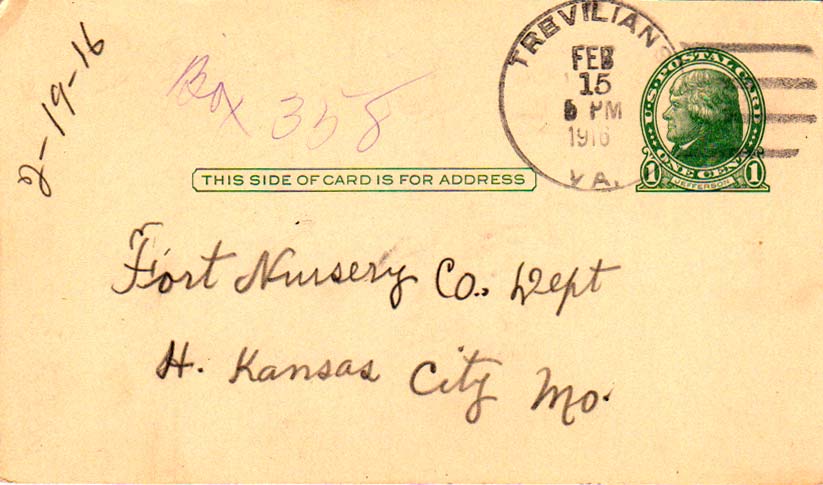 2-19-16
Box 358
TREVILIANS
FEB
15
5 PM
1916
VA.
U.S. POSTAL CARD
ONE CENT
1 JEFFERSON 1
THIS SIDE OF CARD IS FOR ADDRESS
Fort Nursery Co., Dept
H. Kansas City Mo.